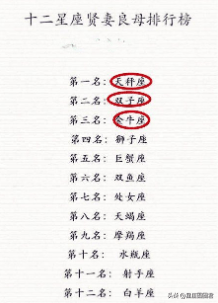 十二星座贤妻良母排行榜
第一名：天秤座
第二名：双子座
第三名：金牛座
第四名：狮子座
第五名：巨蟹座
第六名：双鱼座
第七名：处女座
第八名：天蝎座
第九名：摩羯座
第十名：水瓶座
第十一名：射手座
第十二名：白羊座